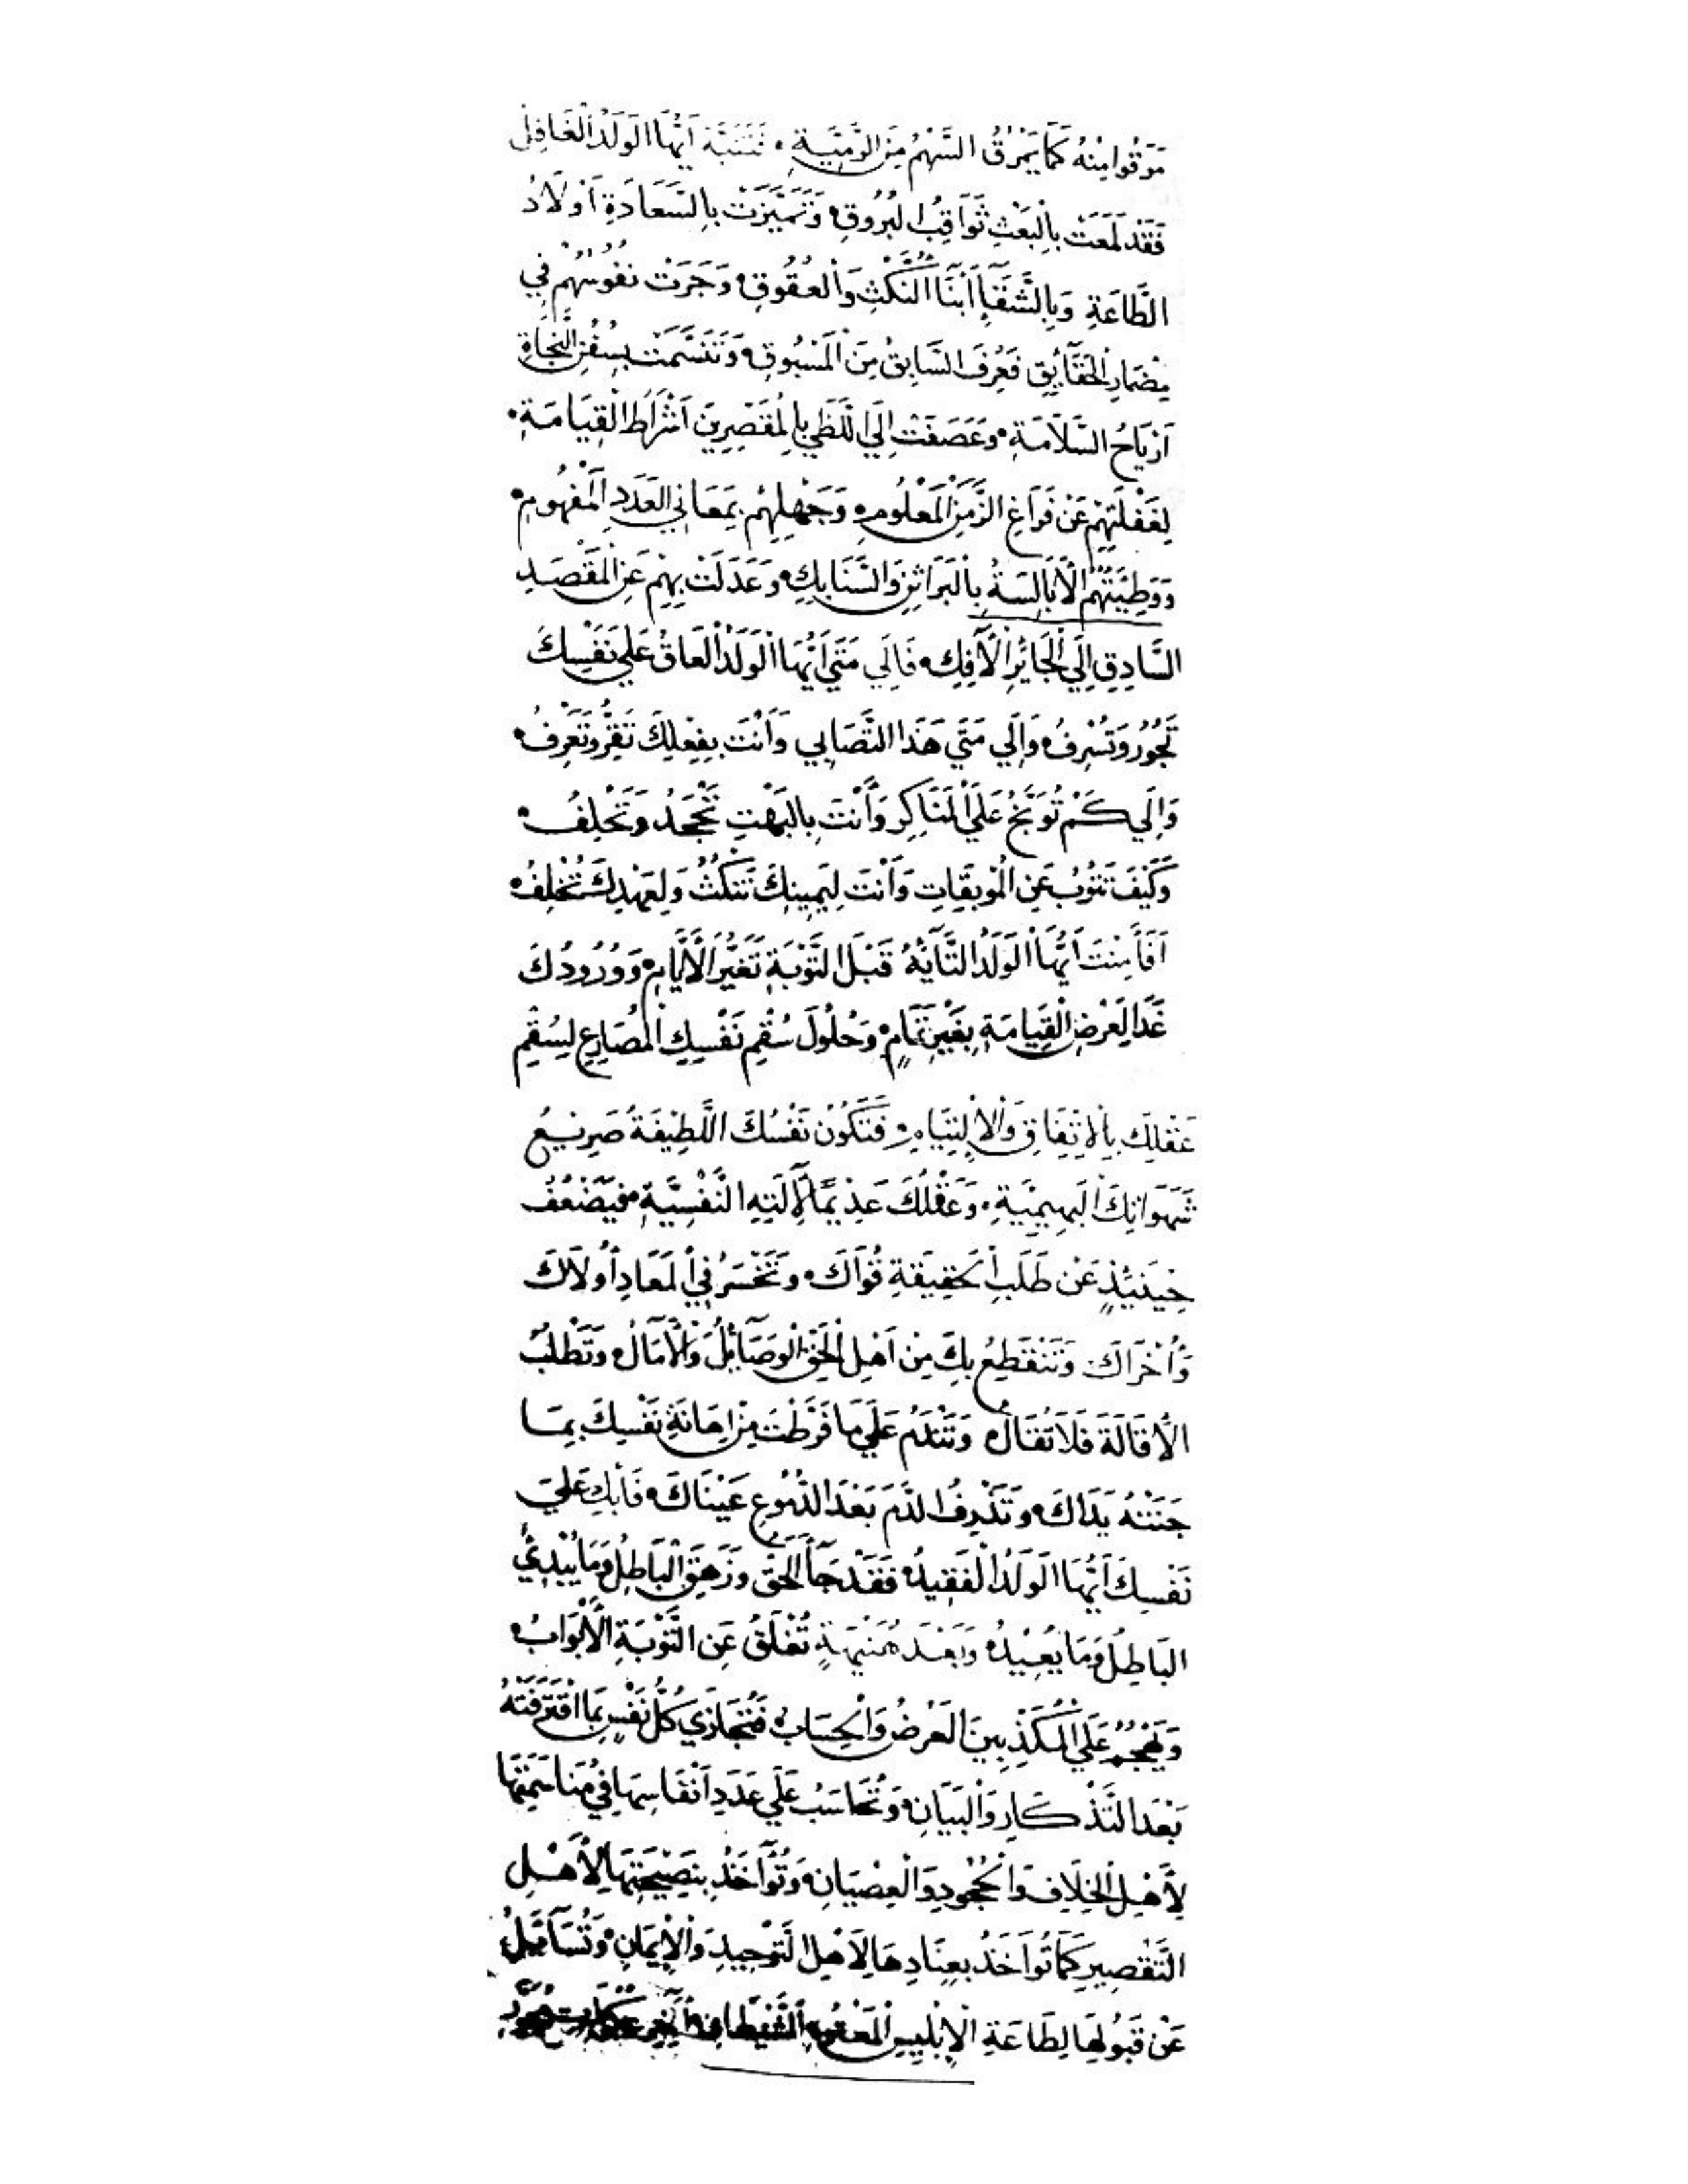 مَرَقُوا مِنْهُ كَمَا يَمْرُقُ السَّهْمُ مِنَ الرَّمِيَّةِ، فَتَنَبَّهْ أَيُّهَا الْوَلَدُ الْغَافِلُ
فَقَدْ لَمَعَتْ بِالْبَعْثِ ثَوَاقِبُ الْبُرُوقِ، وَتَمَيَّزَتْ بِالسَّعَادَةِ أَوْلَادُ
الطَّاعَةِ وَبِالشَّقَآءِ أَبْنَآءُ النَّكْثِ وَالْعُقُوقِ، وَجَرَتْ نُفُوسُهُمْ فِي
مِضْمَارِ الْحَقَآئِقِ فَعُرِفَ السَّابِقُ مِنَ الْمَسْبُوقِ، وَتَنَسَّمَتْ بِسُفُنِ النَّجَاةِ
أَرْيَاحُ السَّلَامَةِ، وَعَصَفَتْ إِلَى اللَّظَى بِالْمُقَصِّرِينَ أَشْرَاطُ الْقِيَامَةِ،
لِغَفْلَتِهِمْ عَنْ فَرَاغِ الزَّمَنِ الْمَعْلُومِ، وَجَهْلِهِمْ بِمَعَانِي الْعَدَدِ الْمَفْهُومِ،
وَوَطِئَتْهُمُ الْأَبَالِسَةُ بِالْبَرَاثِنِ وَالسَّنَابِكِ، وَعَدَلَتْ بِهِمْ عَنِ الْمَقْصَدِ
السَّادِقِ إِلَى الْجَائِرِ الْآفِكِ، فَإِلَي مَتَى أَيُّهَا الْوَلَدُ الْعَاقُّ عَلَى نَفْسِكَ
تَجُورُ وَتُسْرِفُ، وَإِلَي مَتَي هَذَا التَّصَابِي وَأَنْتَ بِفِعْلِكَ تُقِرُّ وَتَعْرِفُ،
وَإِلَي كَمْ تُوَبَّخُ عَلَى الْمَنَاكِرِ وَأَنْتَ بِالْبَهْتِ تَجْحَدُ وَتَحْلِفُ،
وَكَيْفَ تَتُوبُ عَنِ الْمُوبِقَاتِ وَأَنْتَ لِيَمِينِكَ تَنْكُثُ وَلِعَهْدِكَ تُخْلِفُ،
أَفَأَمِنْتَ أَيُّهَا الْوَلَدُ التَّآئِهُ قَبْلَ التَّوْبَةِ تَغَيُّرَ الْأَيَّامِ، وَوُرُودَكَ
غَدًا لِعَرْضِ الْقِيَامَةِ بِغَيْرِ تَمَامٍ، وَحُلُولَ سُقْمِ نَفْسِكَ الْمُصَارِعِ لِسُقْمِ
عَقْلِكَ بِالْإِتِّفَاقِ وَالْإِلْتِيَامِ، فَتَكُونُ نَفْسُكَ اللَّطِيفَةُ صَرِيعَ
شَهَوَاتِكَ الْبَهِيمِيَّةِ، وَعَقْلُكَ عَدِيمًا لِآلَتِهِ النَّفْسِيَّةِ، فَيَضْعُفُ
حِينَئِذٍ عَنْ طَلَبِ الْحَقِيقَةِ قُوَاكَ، وَتَخْسَرُ فِي الْمَعَادِ أُولَاكَ
وَأُخْرَاكَ وَتَنْقَطِعُ بِكَ مِنْ أَهْلِ الْحَقِّ الْوَصَآئِلُ وَالْآمَالُ، وَتَطْلُبُ
الْأَقَالَةَ فَلَا تُقَالُ، وَتَنْدَمُ عَلَى مَا فَرَّطْتَ مِنْ إِهَانَةِ نَفْسِكَ بِمَا
جَنَتْهُ يَدَاكَ، وَتَذْرِفُ الدَّمَ بَعْدَ الدُّمُوعِ عَيْنَاكَ، فَأَبْكِ عَلَي
نَفْسِكَ أَيُّهَا الْوَلَدُ الْفَقِيدُ، فَقَدْ جَآءَ الْحَقُّ وَزَهَقَ الْبَاطِلُ وَمَا يُبْدِئُ
الْبَاطِلُ وَمَا يُعِيدُ، وَبَعْدَ هُنَيْهَةٍ تُغْلَقُ عَنِ التَّوْبَةِ الْأَبْوَابُ،
وَيَهْجُمُ عَلَي الْمُكَذِّبِينَ الْعَرْضُ وَالْحِسَابُ، فَتُجَازَي كُلُّ نَفْسٍ بِمَا اقْتَرَفَتْهُ
بَعْدَ التَّذْكَارِ وَالْبَيَانِ، وَتُحَاسَبُ عَلَي عَدَدِ أَنْفَاسِهَا فِي مَنَاسَمَتِهَا
لِأَهْلِ الْخِلَافِ وَالْجُحُودِ وَالْعِصْيَانِ، وَتُؤَاخَذُ بِنَصِيحَتِهَا لِأَهْلِ
التَّقْصِيرِ كَمَا تُؤَاخَذُ بِعِنَادِهَا لِأَهْلِ التَّوْحِيدِ وَالْإِيمَانِ، وَتُسَآءَلُ
عَنْ قَبُولِهَا لِطَاعَةِ الْإِبْلِيسِ